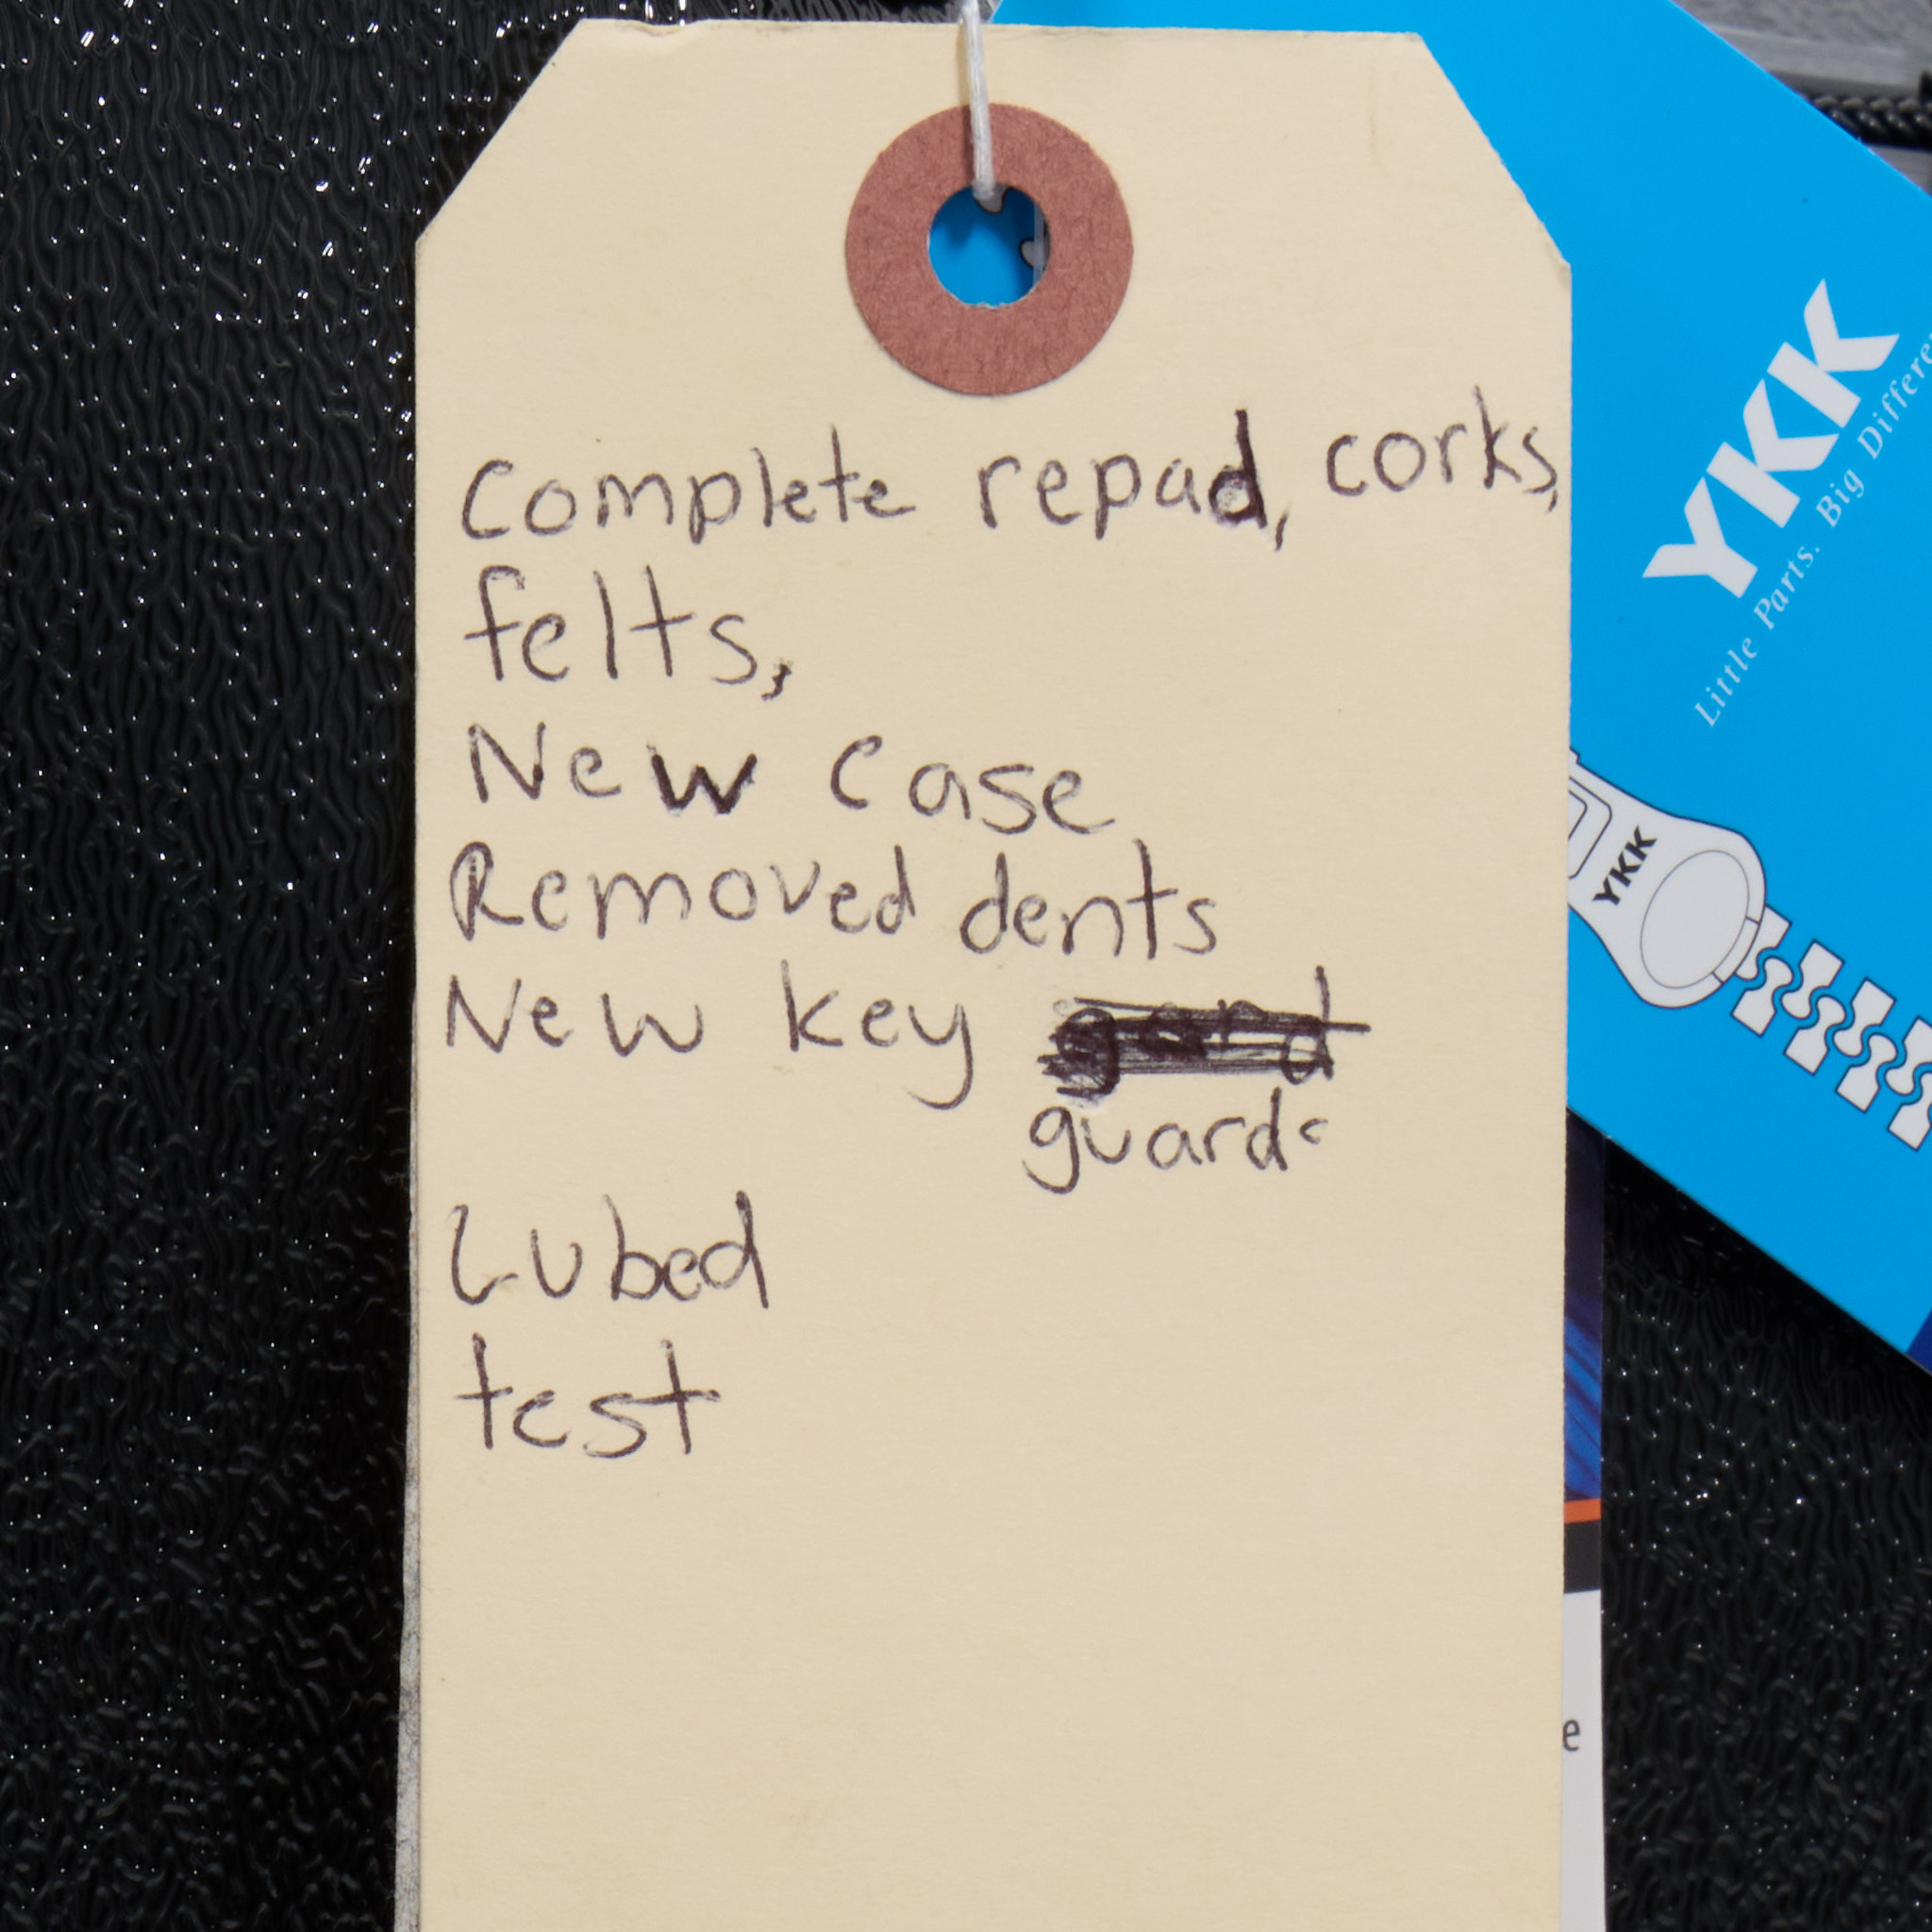 Complete repad, corks,
felts,
New case
Removed dents
New key
guards
Lubed
test
YKK
Little Parts. Big Differe
YKK
e